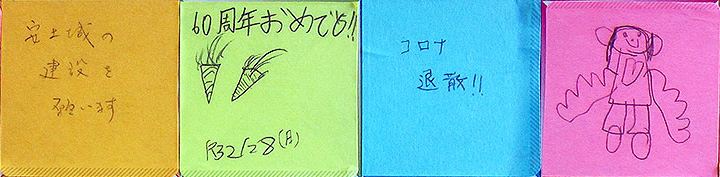 安土城の
建設を
願います
60周年おめでとう!!
R3 2/28(月)
コロナ
退散!!